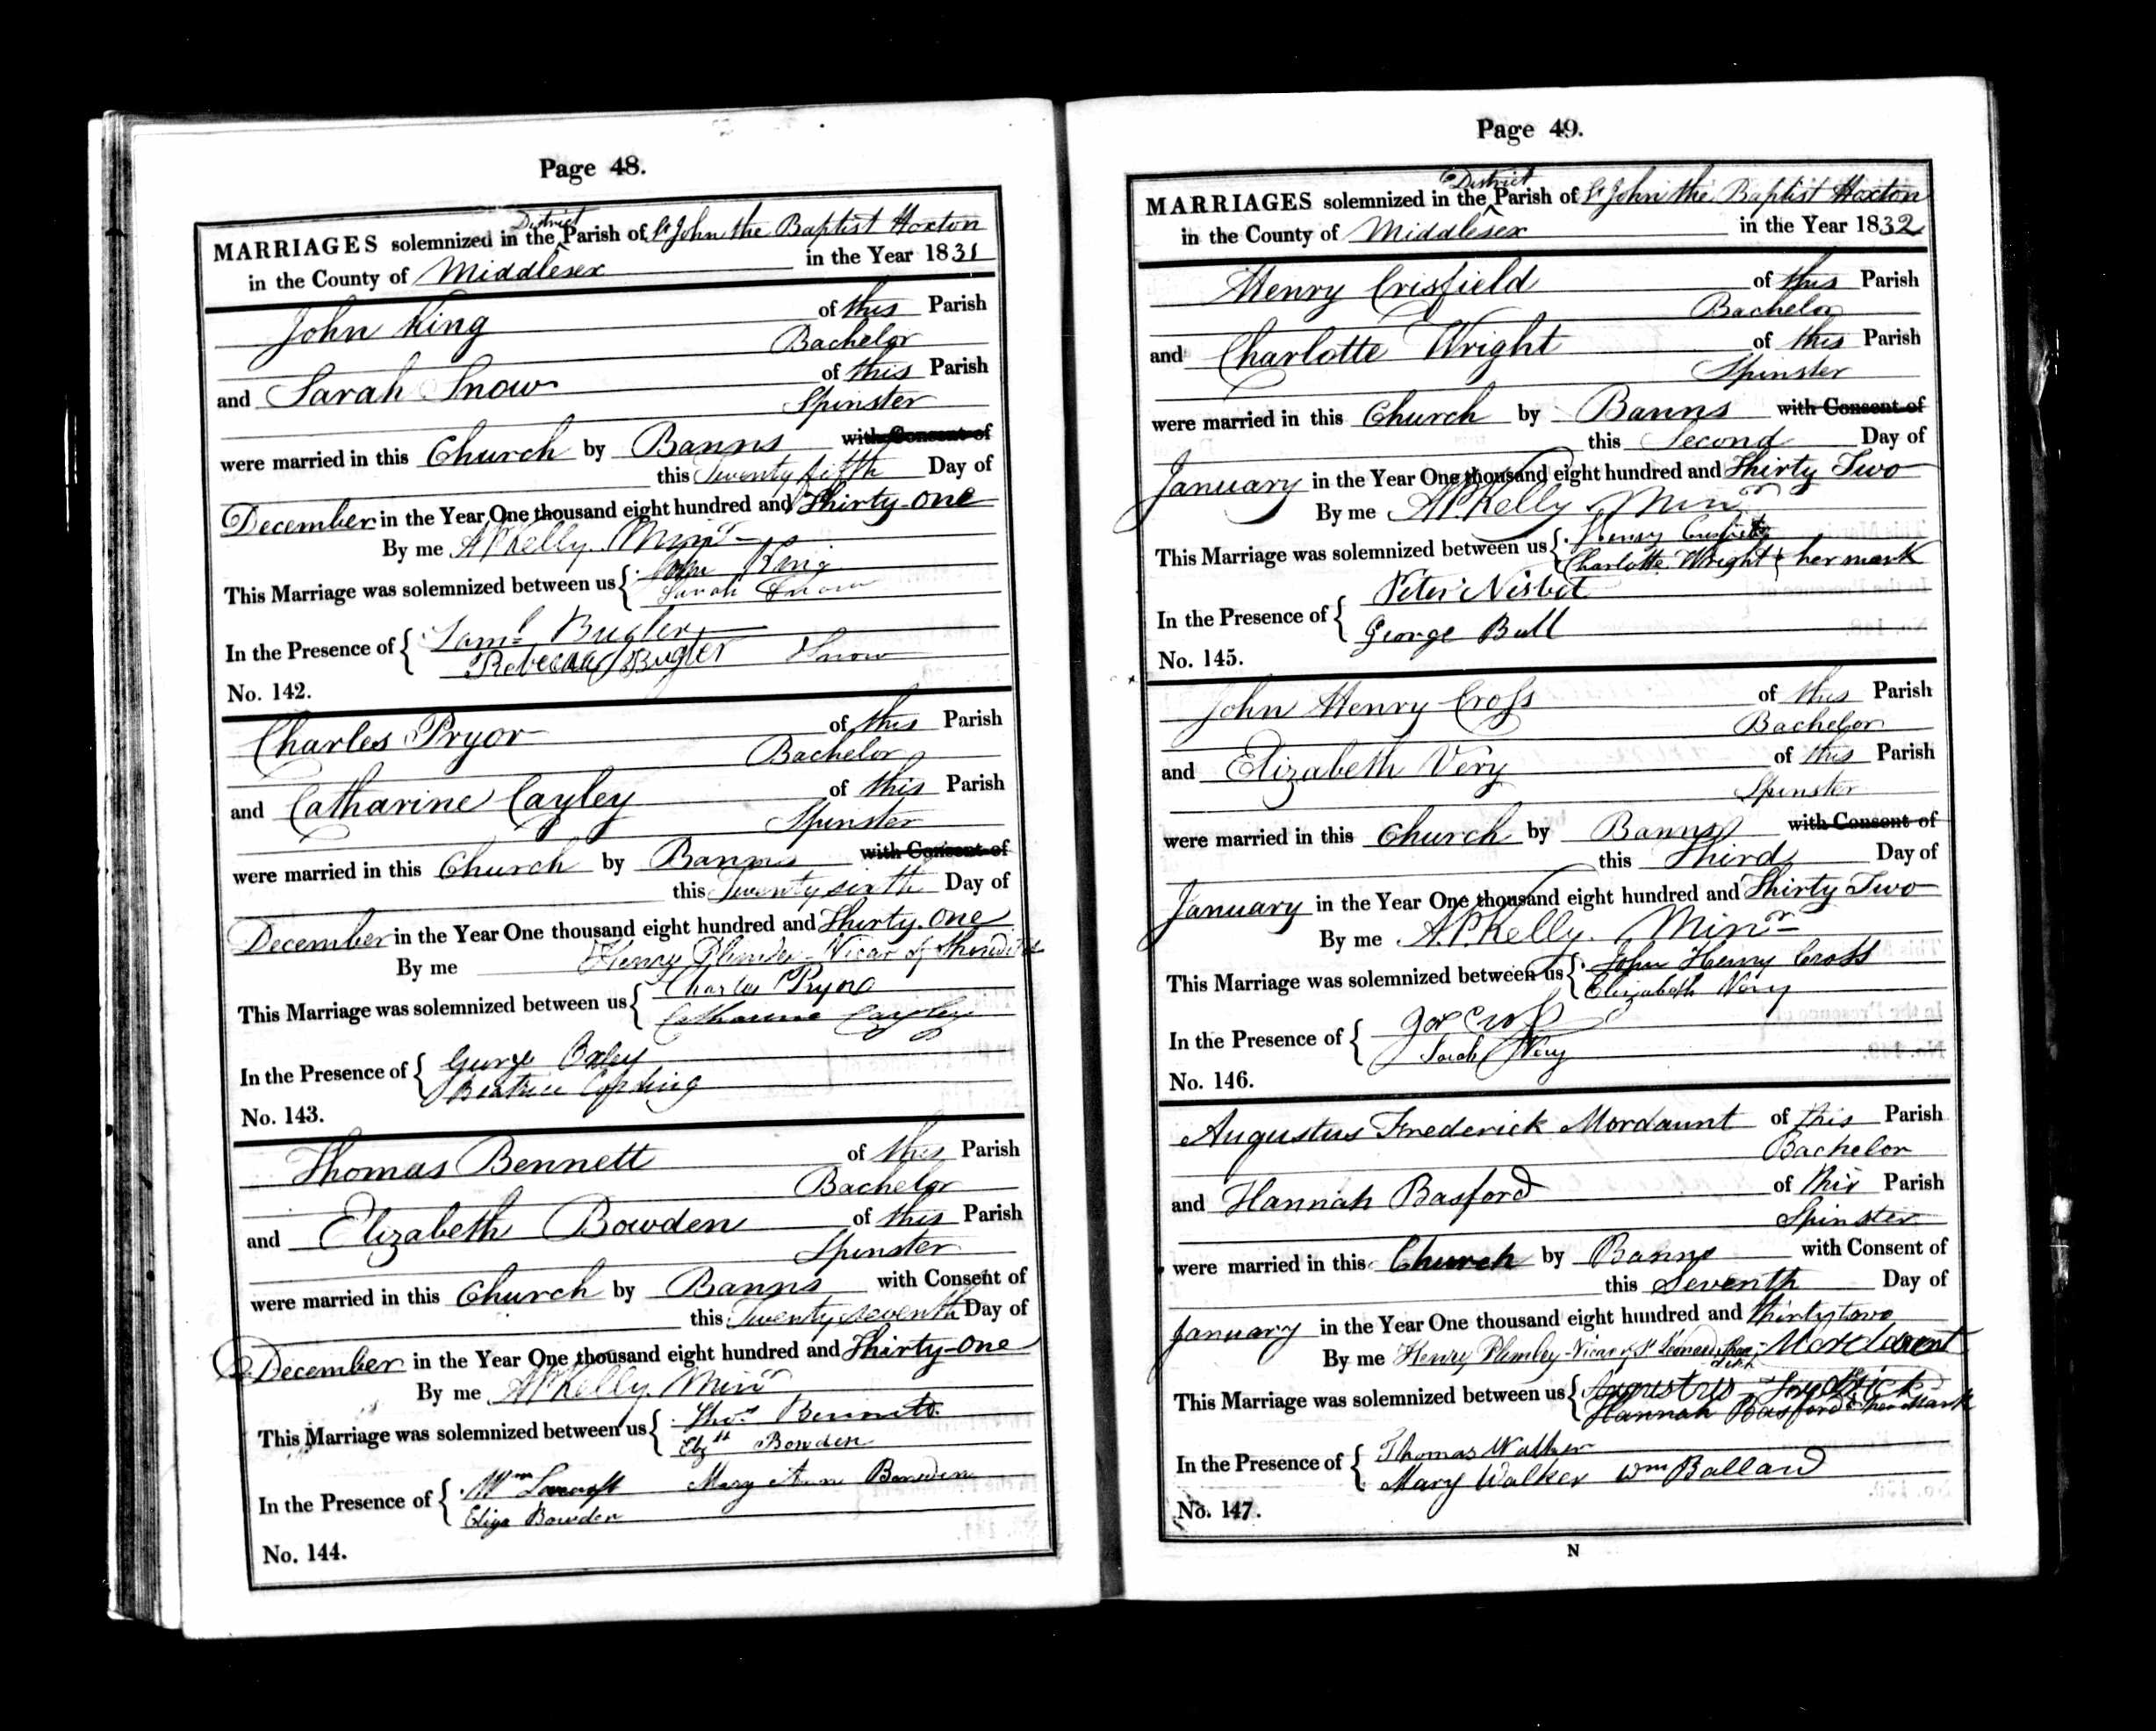 Page 48.
MARRIAGES solemnized in the District Parish of St John the Baptist Hoxton
in the County of Middlesex in the Year 1831
John King of this Parish
Bachelor
and Sarah Snow of this Parish
Spinster
were married in this Church by Banns with Consent of
this Twenty fifth Day of
December in the Year One thousand eight hundred and Thirty-one
By me A.P. Kelly. Minr
This Marriage was solemnized between us { John King
Sarah Snow
In the Presence of { Saml Bugler
Rebecca Bugler Snow
No. 142.
Charles Pryor of this Parish
Bachelor
and Catharine Cayley of this Parish
Spinster
were married in this Church by Banns with Consent of
this Twenty sixth Day of
December in the Year One thousand eight hundred and Thirty-one
By me Henry Plimley Vicar of Shoreditch
This Marriage was solemnized between us { Charles Pryor
Catharine Cayley
In the Presence of { George Oxley
Beatrice
No. 143.
Thomas Bennett of this Parish
Bachelor
and Elizabeth Bowden of this Parish
Spinster
were married in this Church by Banns with Consent of
this Twenty seventh Day of
December in the Year One thousand eight hundred and Thirty-one
By me A.P. Kelly. Minr
This Marriage was solemnized between us { Thos Bennett
Elizth Bowden
In the Presence of { Wm Mary Ann Bowden
Eliza Bowden
No. 144.
Page 49.
MARRIAGES solemnized in the District Parish of St John the Baptist Hoxton
in the County of Middlesex in the Year 1832
Henry Crisfield of this Parish
Bachelor
and Charlotte Wright of this Parish
Spinster
were married in this Church by Banns with Consent of
this Second Day of
January in the Year One thousand eight hundred and Thirty Two
By me A.P. Kelly. Minr
This Marriage was solemnized between us { Henry Crisfield
Charlotte Wright + her mark
In the Presence of { Peter Nisbet
George Bull
No. 145.
John Henry Cross of this Parish
Bachelor
and Elizabeth Very of this Parish
Spinster
were married in this Church by Banns with Consent of
this Third Day of
January in the Year One thousand eight hundred and Thirty Two
By me A.P. Kelly. Minr
This Marriage was solemnized between us { John Henry Cross
Elizabeth Very
In the Presence of { Cross
Sarah Very
No. 146.
Augustus Frederick Mordaunt of this Parish
Bachelor
and Hannah Basford of this Parish
Spinster
were married in this Church by Banns with Consent of
this Seventh Day of
January in the Year One thousand eight hundred and thirty two
By me Henry Plimley Vicar of St Leonard Shoreditch Mordaunt
This Marriage was solemnized between us { Augustus Fredrick
Hannah Basford + her Mark
In the Presence of { Thomas Walker
Mary Walker Wm Ballard
No. 147.
N